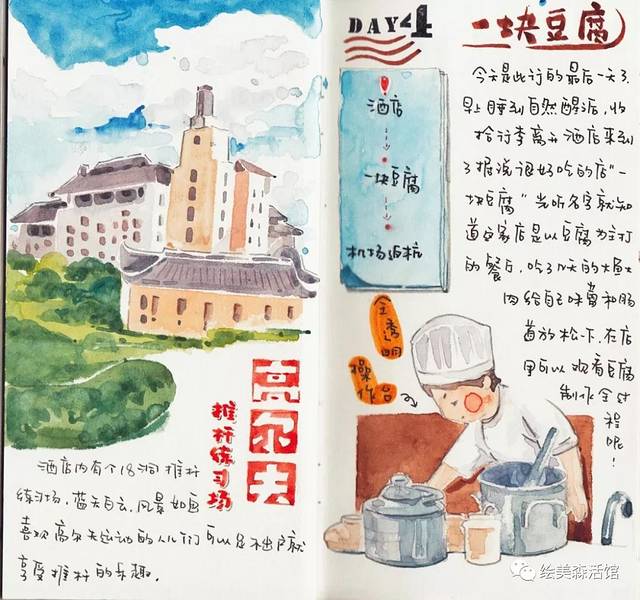 高尔夫
推杆练习场
酒店内有个18洞推杆
练习场,蓝天白云,风景如画
喜欢高尔夫运动的人们可以足不出户就
享受推杆的乐趣.
DAY 4
一块豆腐
酒店
一块豆腐
机场返杭
今天是此行的最后一天了.
早上睡到自然醒后,收
拾行李离开酒店来到
了据说很好吃的店"一
块豆腐"光听名字就知
道这家店是以豆腐为主打
的餐厅,吃了几天的大鱼大
肉给自己味蕾和肠
道放松下,在店
里可以观看豆腐
制作全过
程呢!
全透明
操作台
绘美森活馆